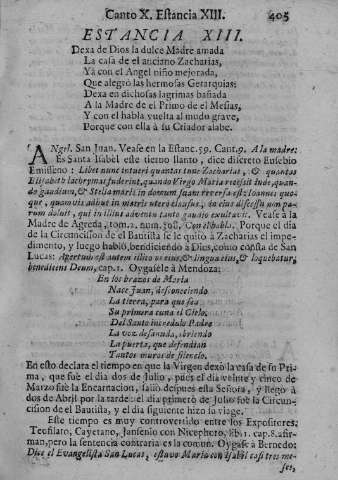 Canto X. Estancia XIII. 405
ESTANCIA XIII.
Dexa de Dios la dulce Madre amada
La casa de el anciano Zacharias,
Yà con el Angel niño mejorada,
Que alegrò las hermosas Gerarquias:
Dexa en dichosas lagrimas bañada
A la Madre de el Primo de el Mesias,
Y con el habla vuelta al mudo grave,
Porque con ella à su Criador alabe.
ANgel. San Juan. Vease en la Estanc. 59. Cant. 9. A la madre:
Es Santa Isabèl este tierno llanto, dice discreto Eusebio
Emisseno: Libet nunc intueri quantas tunc Zacharias, & quantas
Elisabeth lachrymas fuderint, quando Virgo Maria recessit inde, quan-
do gaudium, & Stella maris in domum suam reversa est: Ioannes quo-
que, quamvis adhuc in matris utero clausus, in eius discessu non pa-
rum doluit, qui in illius adventu tanto gaudio exultavit. Vease à la
Madre de Agreda, tom. 2. num. Con el habla: Porque el dia
de la Circuncision de el Bautista se le quitò à Zacharias el impe-
dimento, y luego hablò, bendiciendo à Dios, como consta de San
Lucas: Apertum est autem illico os eius, & lingua eius, & loquebatur,
benedicens Deum, cap. 1. Oygasele à Mendoza:
En los brazos de Maria
Nace Juan, desconociendo
La tierra, para que sea
Su primera cuna el Cielo.
Del Santo incredulo Padre
La voz desanuda, abriendo
La puerta, que defendian
Tantos muros de silencio.
En esto declara el tiempo en que la Virgen dexò la casa de su Pri-
ma, que fuè el dia dos de Julio, pues el dia veinte y cinco de
Marzo fuè la Encarnacion, saliò despues esta Señora, y llegò à
dos de Abril por la tarde: el dia primero de Julio fuè la Circun-
cision de el Bautista, y el dia siguiente hizo su viage.
Este tiempo es muy controvertido entre los Expositores.
Teofilato, Cayetano, Jansenio con Nicephoro, lib. 1. cap. 8. afir-
man, pero la sentencia contraria es la comun. Oygase à Bernedo:
Dice el Evangelista San Lucas, estuvo Maria con Isabèl casi tres me-
ses,